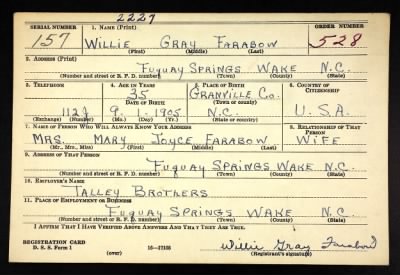 2227
SERIAL NUMBER 1. NAME (Print) ORDER NUMBER
157 WILLIE GRAY FARABOW 528
(First) (Middle) (Last)
2. ADDRESS (Print)
FUQUAY SPRINGS WAKE N.C.
(Number and street or R. F. D. number) (Town) (County) (State)
3. TELEPHONE 4. AGE IN YEARS 5. PLACE OF BIRTH 6. COUNTRY OF CITIZENSHIP
35 GRANVILLE CO.
DATE OF BIRTH (Town or county)
9. 1. 1905 N.C. U.S.A.
(Exchange) (Number) (Mo.) (Day) (Yr.) (State or country)
7. NAME OF PERSON WHO WILL ALWAYS KNOW YOUR ADDRESS 8. RELATIONSHIP OF THAT PERSON
MRS. MARY JOYCE FARABOW WIFE
(Mr., Mrs., Miss) (First) (Middle) (Last)
9. ADDRESS OF THAT PERSON
FUQUAY SPRINGS WAKE N.C.
(Number and street or R. F. D. number) (Town) (County) (State)
10. EMPLOYER'S NAME
TALLEY BROTHERS
11. PLACE OF EMPLOYMENT OR BUSINESS
FUQUAY SPRINGS WAKE N.C.
(Number and street or R. F. D. number) (Town) (County) (State)
I AFFIRM THAT I HAVE VERIFIED ABOVE ANSWERS AND THAT THEY ARE TRUE.
REGISTRATION CARD
D. S. S. Form 1 (over) Willie Gray Farabow
(Registrant's signature)